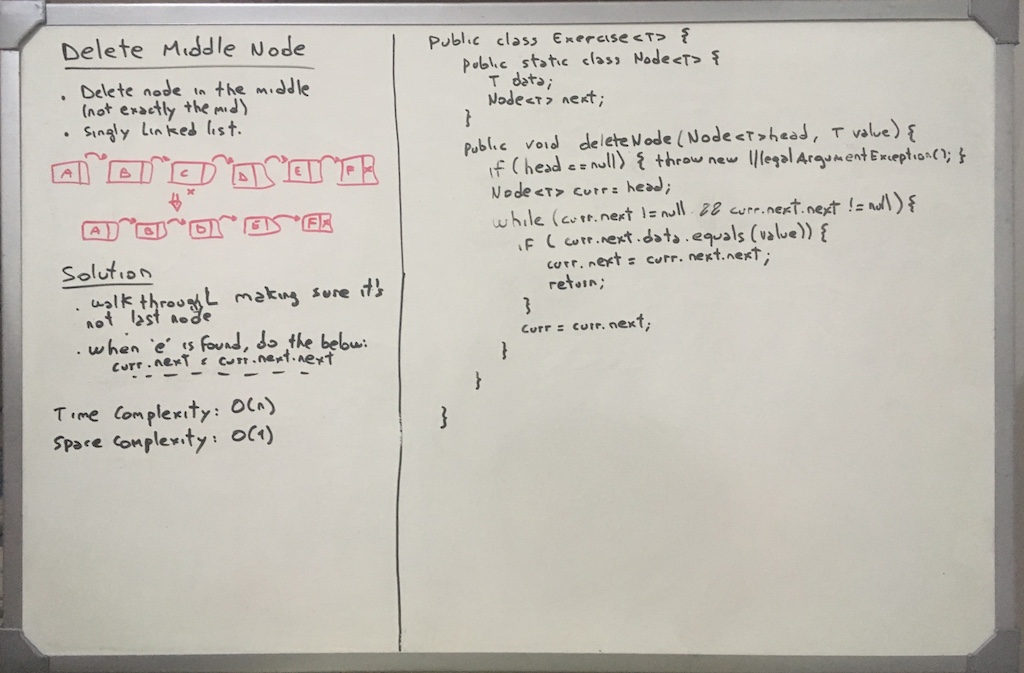 Delete Middle Node
• Delete node in the middle
(not exactly the mid)
• Singly Linked list.
A B C D E F x
x
A B D E F x
Solution
• walk through making sure it's
not last node
• when 'e' is found, do the below:
curr.next = curr.next.next
Time Complexity: O(n)
Space Complexity: O(1)
Public class Exercise<T> {
Public static class Node<T> {
T data;
Node<T> next;
}
Public void deleteNode(Node<T> head, T value) {
if (head == null) { throw new IllegalArgumentException(); }
Node<T> curr = head;
while (curr.next != null && curr.next.next != null) {
if ( curr.next.data.equals(value)) {
curr.next = curr.next.next;
return;
}
curr = curr.next;
}
}
}